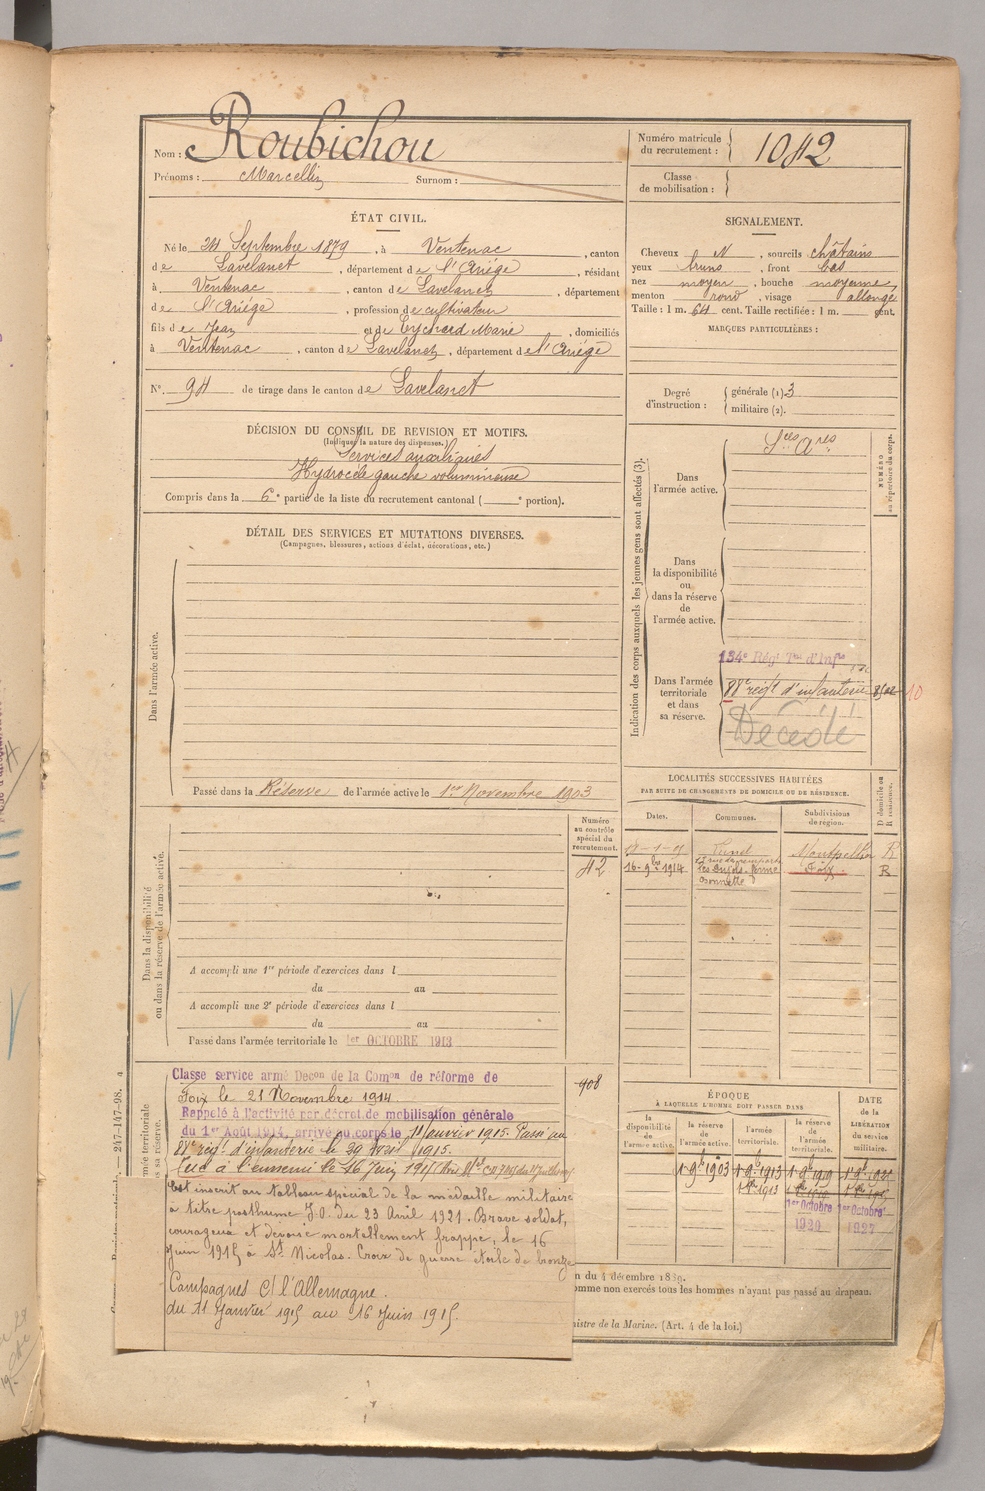 Nom : Roubichou
Prénoms : Marcellin Surnom :
Numéro matricule du recrutement : 1042
Classe de mobilisation :
ÉTAT CIVIL.
Né le 24 Septembre 1879, à Ventenac, canton
de Lavelanet, département de l'Ariège, résidant
à Ventenac, canton de Lavelanet, département
de l'Ariège, profession de cultivateur
fils de Jean et de Eychard Marie, domiciliés
à Ventenac, canton de Lavelanet, département de l'Ariège
N° 94 de tirage dans le canton de Lavelanet
SIGNALEMENT.
Cheveux N, sourcils châtains
yeux bruns, front bas
nez moyen, bouche moyenne
menton rond, visage allongé
Taille : 1 m. 64 cent. Taille rectifiée : 1 m. cent.
MARQUES PARTICULIÈRES :
Degré d'instruction : générale (1) 3
militaire (2).
DÉCISION DU CONSEIL DE REVISION ET MOTIFS.
(Indiquer la nature des dispenses.)
Services auxiliaires
Hydrocèle gauche volumineuse
Compris dans la 6e partie de la liste du recrutement cantonal ( e portion).
DÉTAIL DES SERVICES ET MUTATIONS DIVERSES.
(Campagnes, blessures, actions d'éclat, décorations, etc.)
Dans l'armée active.
Passé dans la Réserve de l'armée active le 1er Novembre 1903
Indication des corps auxquels les jeunes gens sont affectés (3).
NUMÉRO au répertoire du corps.
Dans l'armée active.
Sces Ares
Dans la disponibilité ou dans la réserve de l'armée active.
Dans l'armée territoriale et dans sa réserve.
134e Régt Tal d'Infie
88e régt d'infanterie
10
Décédé
LOCALITÉS SUCCESSIVES HABITÉES
PAR SUITE DE CHANGEMENTS DE DOMICILE OU DE RÉSIDENCE.
Dates. Communes. Subdivisions de région. D domicile ou R résidence.
Lunel Montpellier R
16-9bre 1914 Foix R
Dans la disponibilité ou dans la réserve de l'armée active.
Numéro au contrôle spécial du recrutement.
42
A accompli une 1re période d'exercices dans l
du au
A accompli une 2e période d'exercices dans l
du au
Passé dans l'armée territoriale le 1er OCTOBRE 1913
908
Classé service armé Decon de la Comon de réforme de
Foix le 21 Novembre 1914.
Rappelé à l'activité par décret de mobilisation générale
du 1er Août 1914, arrivé au corps le 11 Janvier 1915. Passé au
88e régt d'infanterie le 29 Avril 1915.
Tué à l'ennemi le 16 Juin 1915
Est inscrit au tableau spécial de la médaille militaire
à titre posthume J.O. du 23 Avril 1921. Brave soldat,
courageux et dévoué mortellement frappé, le 16
Juin 1915, à St Nicolas. Croix de guerre étoile de bronze
Campagnes C/ l'Allemagne.
du 11 Janvier 1915 au 16 Juin 1915.
ÉPOQUE
À LAQUELLE L'HOMME DOIT PASSER DANS
la disponibilité de l'armée active. la réserve de l'armée active. l'armée territoriale. la réserve de l'armée territoriale.
DATE de la LIBÉRATION du service militaire.
1er 9bre 1903
1er Octobre 1920
1er Octobre 1927
n du 4 décembre 1889.
omme non exercés tous les hommes n'ayant pas passé au drapeau.
nistre de la Marine. (Art. 4 de la loi.)
247-147-98.